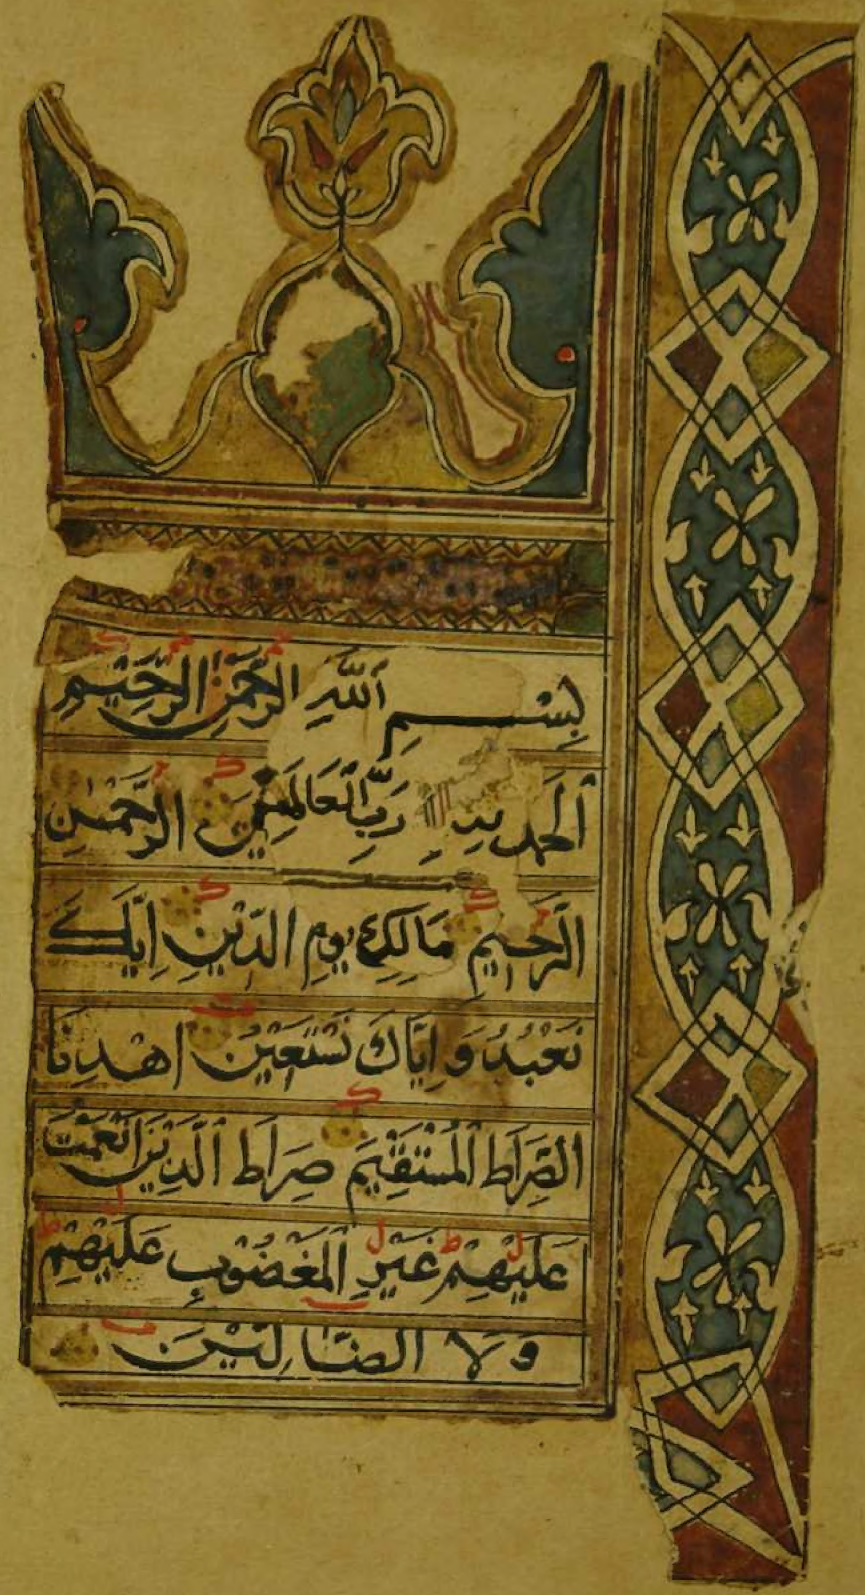 بِسْمِ ٱللَّهِ الرَّحْمٰنِ الرَّحِيْمِ
اَلْحَمْدُ لِلّٰهِ رَبِّ الْعَالَمِيْنَ الرَّحْمٰنِ
الرَّحِيْمِ مَالِكِ يَوْمِ الدِّيْنِ اِيَّاكَ
نَعْبُدُ وَ اِيَّاكَ نَسْتَعِيْنُ اهْدِنَا
الصِّرَاطَ الْمُسْتَقِيْمَ صِرَاطَ الَّذِيْنَ اَنْعَمْتَ
عَلَيْهِمْ غَيْرِ الْمَغْضُوْبِ عَلَيْهِمْ
وَلَا الضَّالِّيْنَ